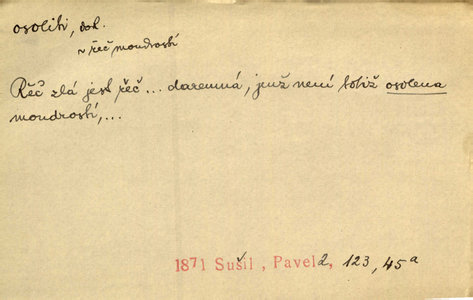 osoliti, dok.
~ řeč moudrostí
Řeč zlá jest řeč ... daremná, jenž není totiž osolena
moudrostí, ...
1871 Sušil, Pavel 2, 123, 45a